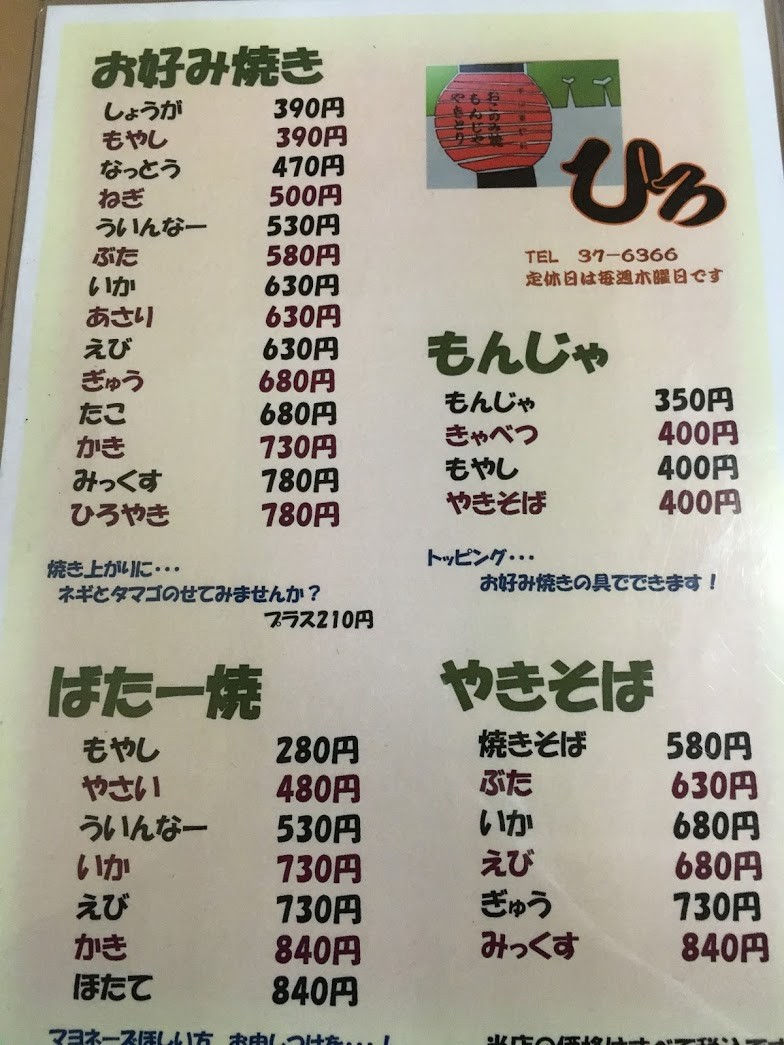 お好み焼き
しょうが 390円
もやし 390円
なっとう 470円
ねぎ 500円
ういんなー 530円
ぶた 580円
いか 630円
あさり 630円
えび 630円
ぎゅう 680円
たこ 680円
かき 730円
みっくす 780円
ひろやき 780円
焼き上がりに・・・
ネギとタマゴのせてみませんか？
プラス210円
おこのみ焼
もんじゃ
やきとり
ひろ
TEL 37-6366
定休日は毎週木曜日です
もんじゃ
もんじゃ 350円
きゃべつ 400円
もやし 400円
やきそば 400円
トッピング・・・
お好み焼きの具でできます！
ばたー焼
もやし 280円
やさい 480円
ういんなー 530円
いか 730円
えび 730円
かき 840円
ほたて 840円
マヨネーズほしい方、お申しつけを・・・！
やきそば
焼きそば 580円
ぶた 630円
いか 680円
えび 680円
ぎゅう 730円
みっくす 840円
当店の価格はすべて税込で